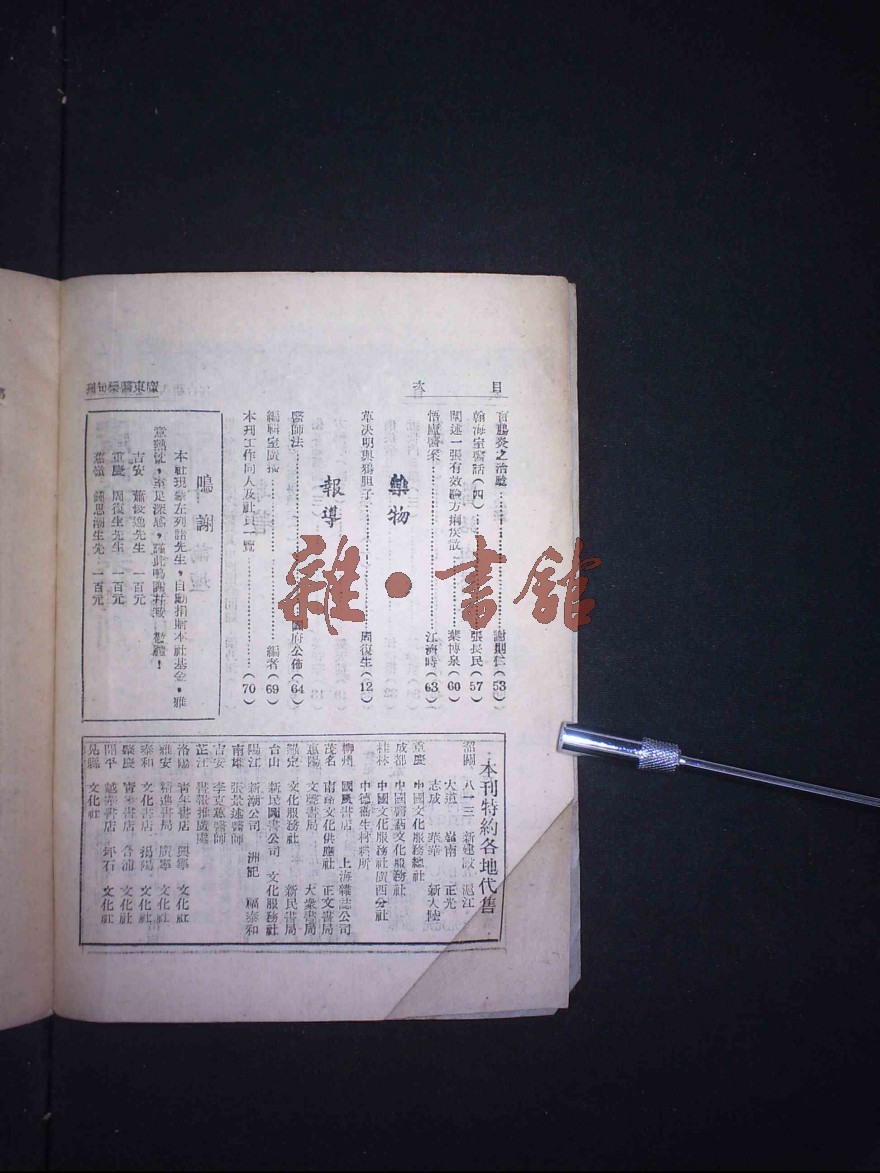 目 次
廣東醫藥旬刊
盲腸炎之治驗 謝則仁(53)
翰海室醫話(四) 張長民(57)
闡述一張有效驗方痢疾散 葉博泉(60)
悟廬醫案 江濟時(63)
藥物
草決明與鴉胆子 周復生(12)
報導
醫師法 國府公佈(64)
編輯室廣播 編者(69)
本刊工作同人及社員一覽(70)
鳴謝
本社現蒙左列諸先生,自動捐助本社基金,雅
意熱忱,至足深感,謹此鳴謝
吉安 蕭俊逸先生 一百元
重慶 周復生先生 一百元
蕉嶺 鍾思潮先生 一百元
本刊特約各地代售
韶關 八一三 新建設 滬江
大道 嶺南 正光
志成 榮華 新大陸
重慶 中國文化服務總社
成都 中國醫藥文化服務社
桂林 中國文化服務社廣西分社
中德衞生材料所
柳州 國風書店 上海雜誌公司
茂名 南路文化供應社 正文書局
惠陽 文華書局 大衆書局
羅定 文化服務社 新民書局
台山 新民圖書公司 文化服務社
陽江 新潮公司 洲記 福泰和
南雄 張景述醫師
吉安 李克蕙醫師
芷江 書報推廣處
洛陽 青年書店 興寧 文化社
雅安 精進書局 廣寧 文化社
泰和 文化書店 揭陽 文化社
肇慶 青年書店 合浦 文化社
開平 越華書店 坪石 文化社
文化社
雜·書館